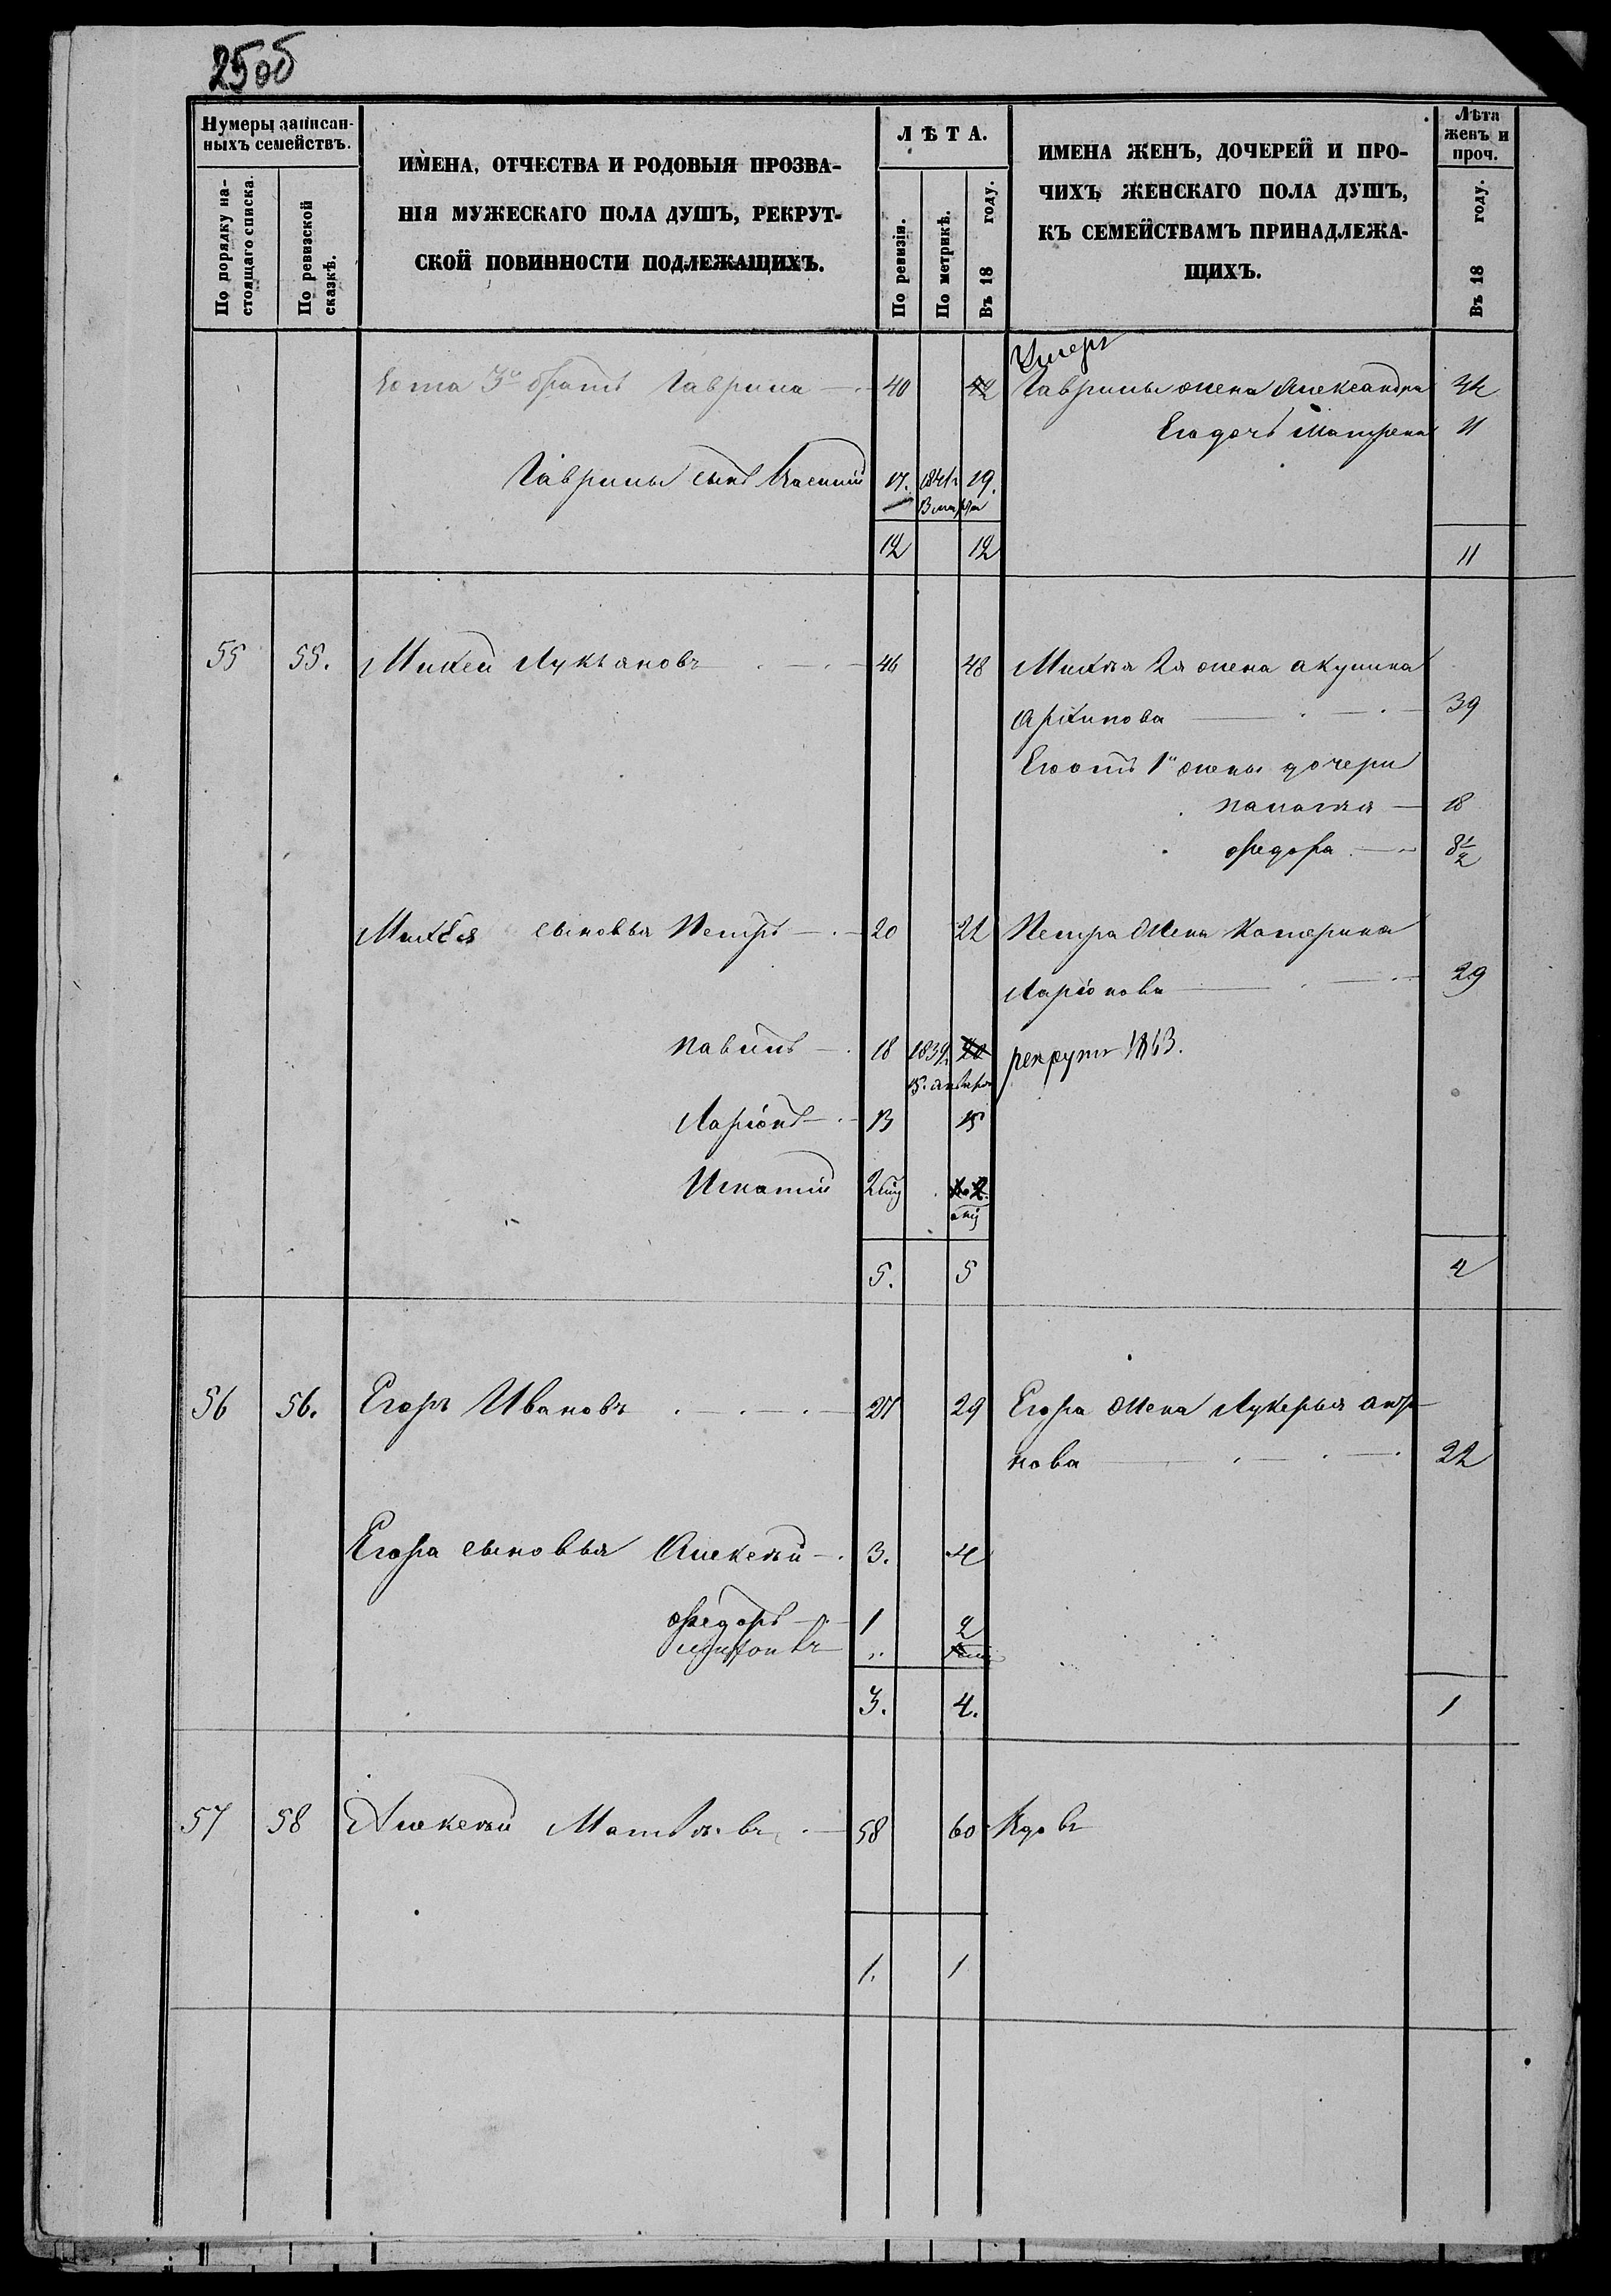 25об
Нумеры записан-
ныхъ семействъ.
По порядку на-
стоящаго списка.
По ревизской
сказкѣ.
ИМЕНА, ОТЧЕСТВА И РОДОВЫЯ ПРОЗВА-
НІЯ МУЖЕСКАГО ПОЛА ДУШЪ, РЕКРУТ-
СКОЙ ПОВИННОСТИ ПОДЛЕЖАЩИХЪ.
ЛѢТА.
По ревизіи.
По метрикѣ.
Въ 18 году.
ИМЕНА ЖЕНЪ, ДОЧЕРЕЙ И ПРО-
ЧИХЪ ЖЕНСКАГО ПОЛА ДУШЪ,
КЪ СЕМЕЙСТВАМЪ ПРИНАДЛЕЖА-
ЩИХЪ.
Лѣта
женъ и
проч.
Въ 18 году.
Умеръ
3й братъ Гаврила 40 42 Гаврилы жена Александра
Его дочь Матрена 11
Гаврилы сынъ 17. 1841 19.
13 марта
12 12 11
55 55. Михей Лукьяновъ 46 48 Михея 2я жена акулина
Архипова 39
Его отъ 1й жены дочери
палагея 18
Федора 8 1/2
Михея сыновья Петръ 20 22 Петра жена Катерина
Ларіонова 29
павелъ 18 1839 20 рекрутъ 1863.
15. января
Ларіонъ 13 15
Игнатій
5. 5 4
56 56. Егоръ Ивановъ 27 29 Егора жена Лукерья
нова 22
Егора сыновья Алексѣй 3. 4
Федоръ 1 2
3. 4. 1
57 58 Алексѣй Матвѣевъ 58 60 Вдовъ
1. 1